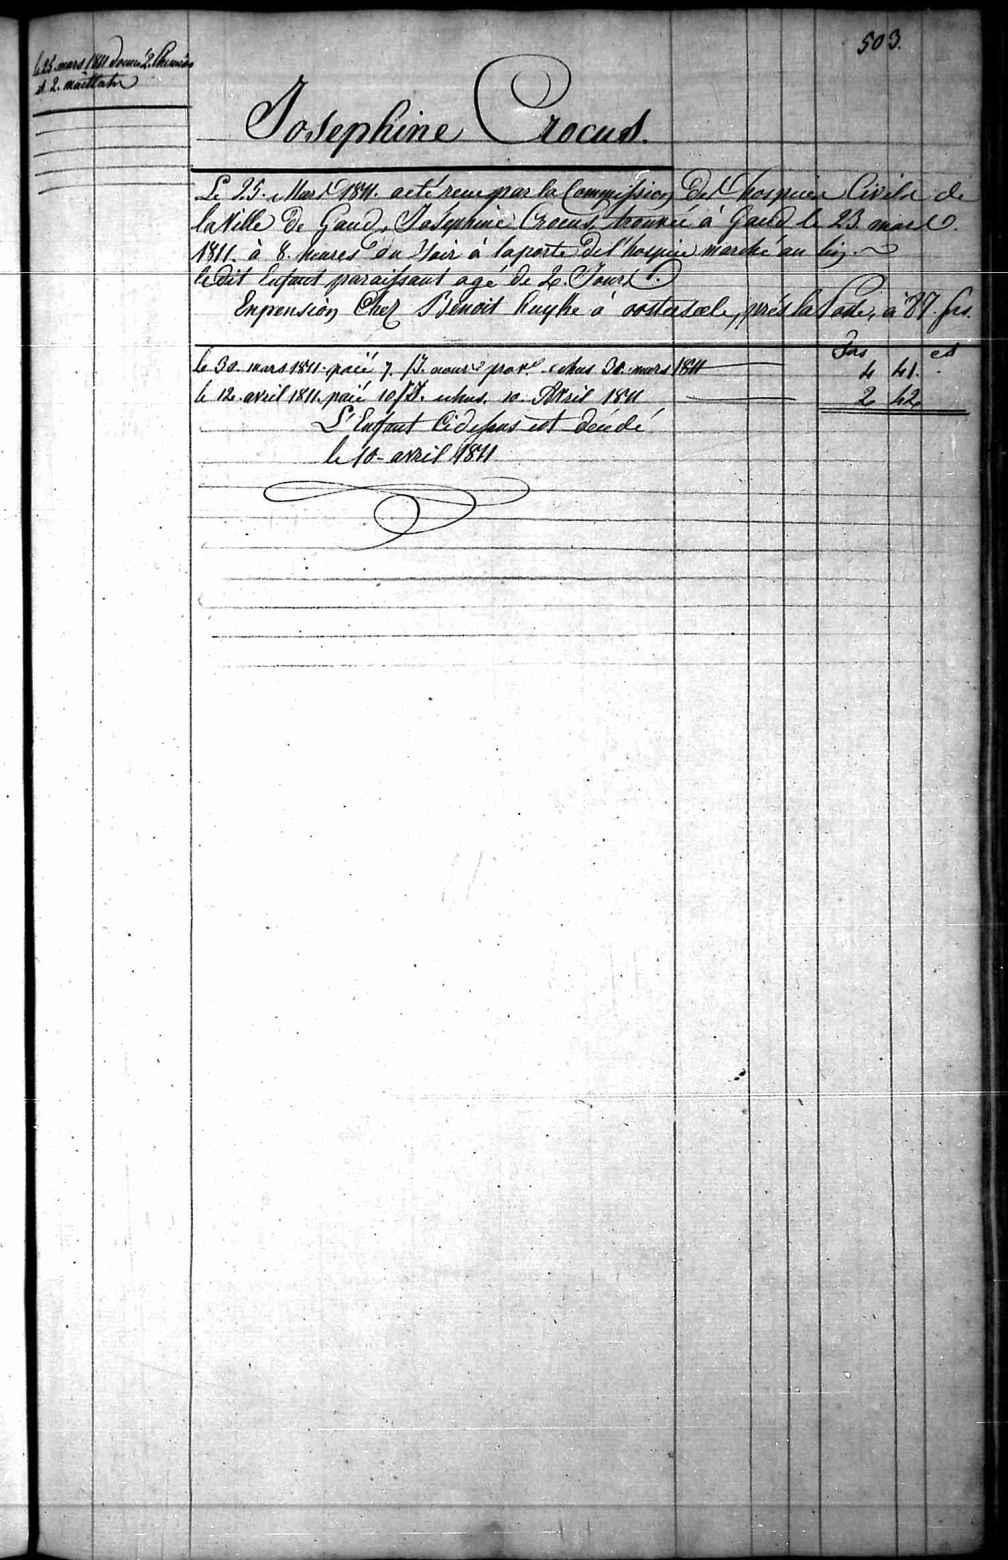 503.
le 25. mars 1811 donné 2. Chemises
et 2.
Josephine Crocus.
Le 25. Mars 1811. a eté recue par la Commission des hospices Civils de
la Ville de Gand, Joséphine Crocus, trouvée à Gand le 23 mars
1811. à 8. heures du Soir à la porte de l'hospice marché au lin.
le dit Enfant paraissant agé de 2. Jours.
En pension Chez Benoit à oosterzele, près la à 87. frs.
frs ct
le 30. mars 1811. paié 7. Jrs. echus 30. mars 1811 4 41.
le 12. avril 1811. paié 10 Jrs. echus. 10. Avril 1811 2 42
L'Enfant Cidessus est décédé
le 10 avril 1811